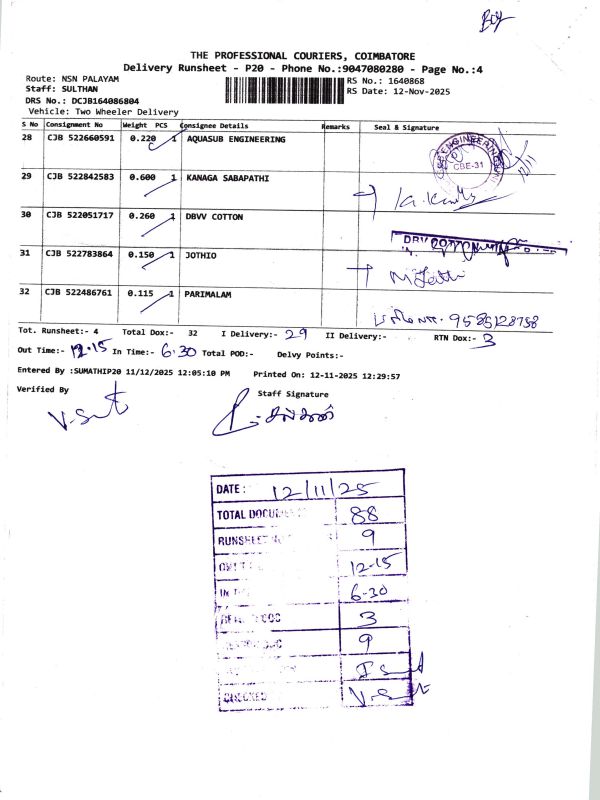 THE PROFESSIONAL COURIERS, COIMBATORE
Delivery Runsheet - P20 - Phone No.:9047080280 - Page No.:4
Route: NSN PALAYAM RS No.: 1640868
Staff: SULTHAN RS Date: 12-Nov-2025
DRS No.: DCJB164086804
Vehicle: Two Wheeler Delivery
S No Consignment No Weight PCS Consignee Details Remarks Seal & Signature
28 CJB 522660591 0.220 1 AQUASUB ENGINEERING
ENGINEERING CBE-31
29 CJB 522842583 0.600 1 KANAGA SABAPATHI
30 CJB 522051717 0.260 1 DBVV COTTON
31 CJB 522783864 0.150 1 JOTHIO
32 CJB 522486761 0.115 1 PARIMALAM
Tot. Runsheet:- 4 Total Dox:- 32 I Delivery:- 29 II Delivery:- RTN Dox:- 3
Out Time:- 12.15 In Time:- 6.30 Total POD:- Delvy Points:-
Entered By :SUMATHIP20 11/12/2025 12:05:10 PM Printed On: 12-11-2025 12:29:57
Verified By Staff Signature
DATE : 12/11/25
TOTAL 88
RUNSHEET 9
12-15
6-30
3
9
CHECKED